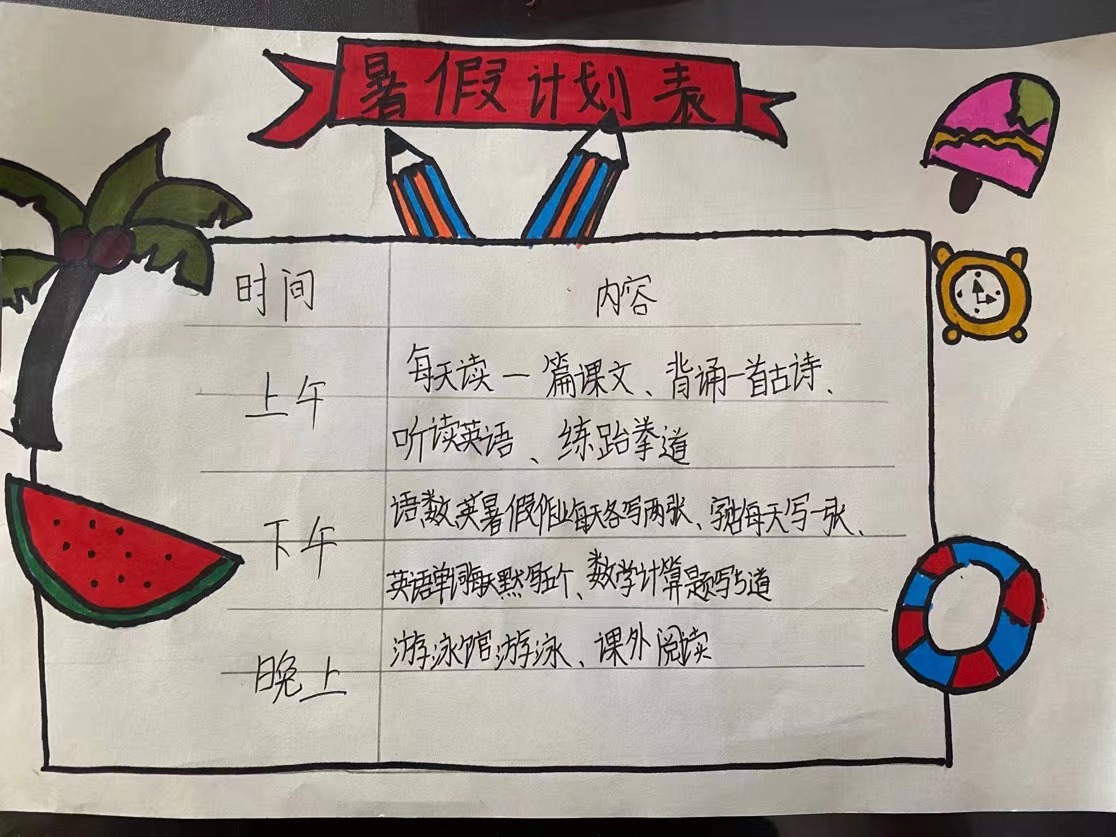 暑假计划表
时间 内容
上午 每天读一篇课文、背诵一首古诗、
听读英语、练跆拳道
下午 语、数、英暑假作业每天各写两张、字帖每天写一张、
英语单词每天默写五个、数学计算题写5道
晚上 游泳馆游泳、课外阅读